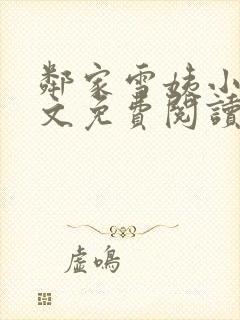 鄰家雪姨小
文免費閱讀
虛鳴